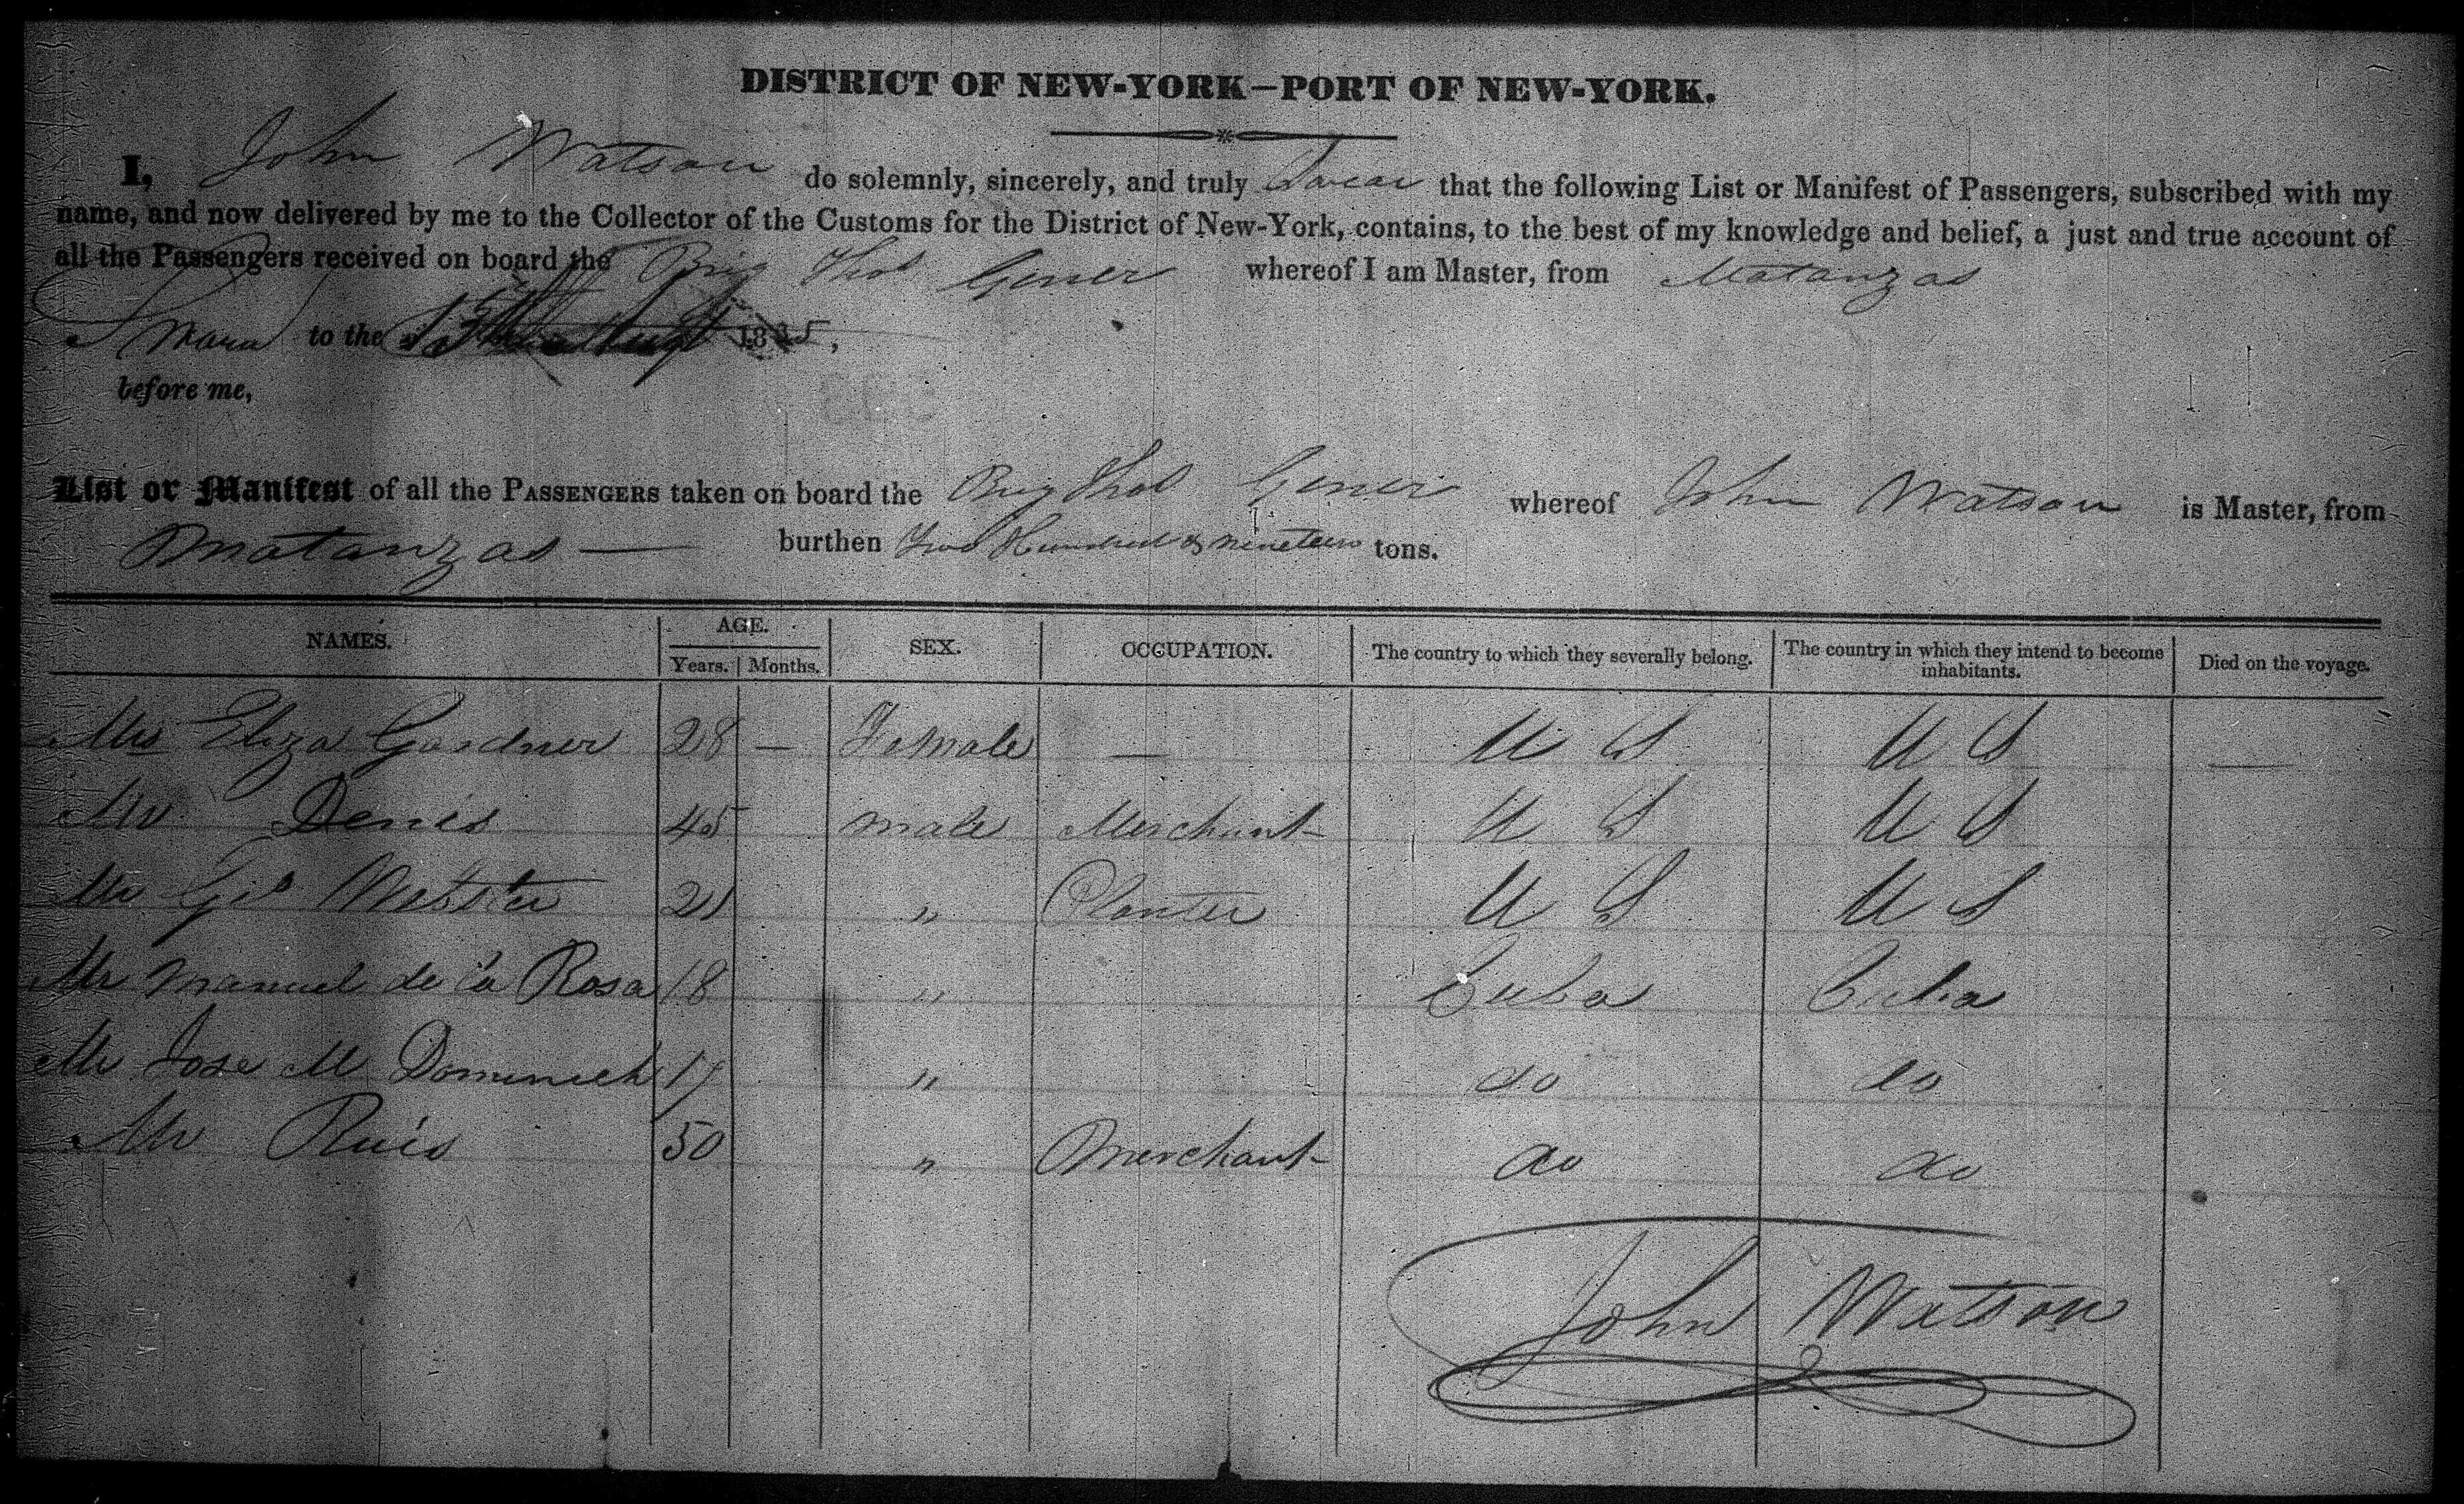 DISTRICT OF NEW-YORK—PORT OF NEW-YORK.
I, John Watson do solemnly, sincerely, and truly Swear that the following List or Manifest of Passengers, subscribed with my
name, and now delivered by me to the Collector of the Customs for the District of New-York, contains, to the best of my knowledge and belief, a just and true account of
all the Passengers received on board the Brig Thos Gener whereof I am Master, from Matanzas
to the 1835,
before me,
List or Manifest of all the PASSENGERS taken on board the Brig Thos Gener whereof John Watson is Master, from
Matanzas — burthen Two Hundred & nineteen tons.
NAMES. AGE. SEX. OCCUPATION. The country to which they severally belong. The country in which they intend to become inhabitants. Died on the voyage.
Years. Months.
Mrs Eliza Gardner 28 — Female — U S U S —
Mr Denis 45 male Merchant U S U S
Mr Webster 21 " Planter U S U S
Mr Manuel de la Rosa 18 " Cuba Cuba
Mr Jose M Dominech 17 " do do
Mr Ruis 50 " Merchant do do
John Watson